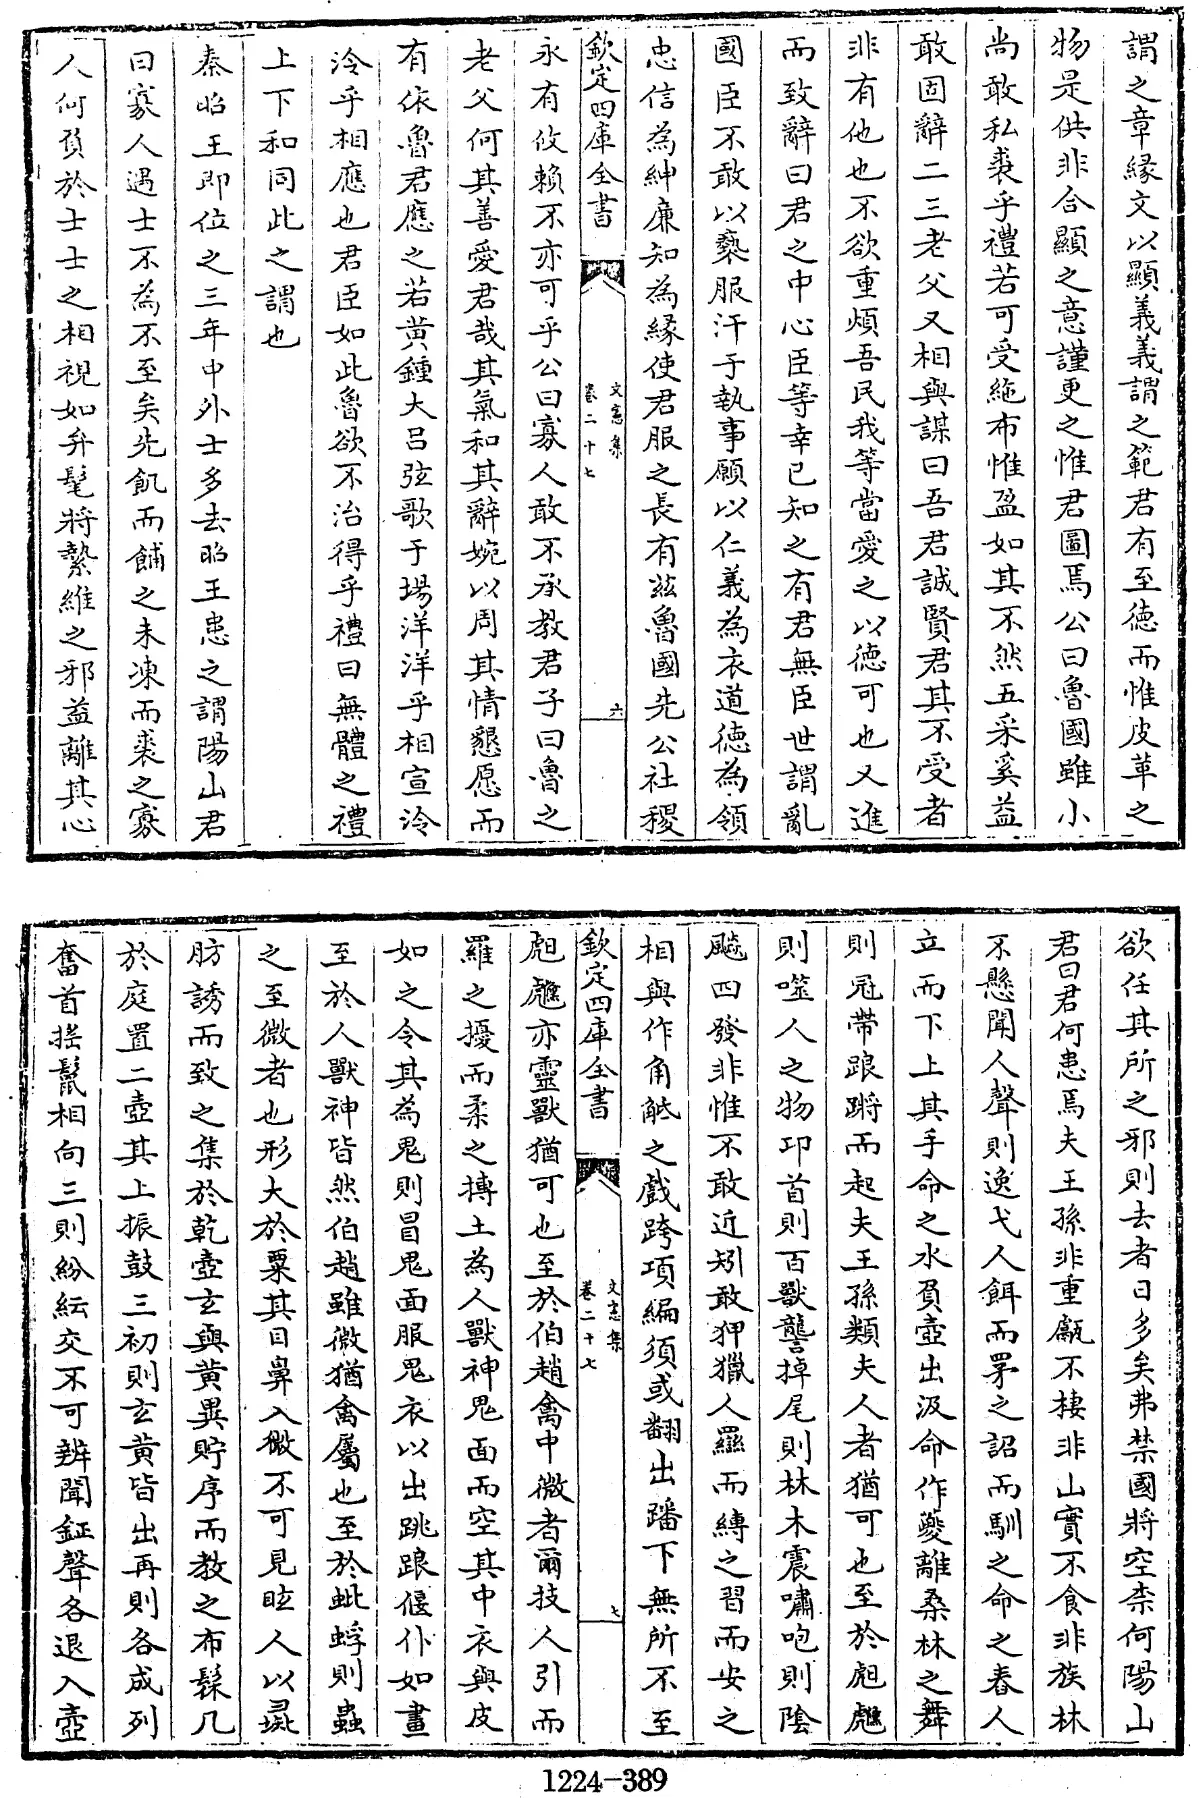 謂之章緣文以顯義義謂之範君有至徳而惟皮革之
物是供非合顯之意謹更之惟君圖焉公曰魯國雖小
尚敢私裘乎禮若可受絁布惟盈如其不然五采奚益
敢固辭二三老父又相與謀曰吾君誠賢君其不受者
非有他也不欲重煩吾民我等當愛之以徳可也又進
而致辭曰君之中心臣等幸已知之有君無臣世謂亂
國臣不敢以䙝服汗于執事願以仁義為衣道徳為領
忠信為紳廉知為緣使君服之長有兹魯國先公社稷
欽定四庫全書
文憲集
卷二十七
六
永有攸賴不亦可乎公曰寡人敢不承教君子曰魯之
老父何其善愛君哉其氣和其辭婉以周其情懇愿而
有依魯君應之若黄鍾大吕弦歌于場洋洋乎相宣泠
泠乎相應也君臣如此魯欲不治得乎禮曰無體之禮
上下和同此之謂也
秦昭王即位之三年中外士多去昭王患之謂陽山君
曰寡人遇士不為不至矣先飢而餔之未凍而裘之寡
人何負於士士之相視如弁髦將縶維之邪益離其心
欲任其所之邪則去者日多矣弗禁國將空柰何陽山
君曰君何患焉夫王孫非重甗不棲非山實不食非族林
不懸聞人聲則逸弋人餌而罞之詔而馴之命之舂人
立而下上其手命之水負壺出汲命作夔離桑林之舞
則冠帶踉蹡而起夫王孫類夫人者猶可也至於彪虪
則噬人之物卬首則百獸讋掉尾則林木震嘯咆則陰
飈四發非惟不敢近矧敢狎獵人羅而縛之習而安之
相與作角觝之戲跨項編須或翻出蹯下無所不至
欽定四庫全書
文憲集
卷二十七
七
彪虪亦靈獸猶可也至於伯趙禽中微者爾技人引而
羅之擾而柔之摶土為人獸神鬼面而空其中衣與皮
如之令其為鬼則冒鬼面服鬼衣以出跳踉偃仆如畫
至於人獸神皆然伯趙雖微猶禽屬也至於蚍蜉則蟲
之至微者也形大於粟其目鼻入微不可見眩人以螱
肪誘而致之集於乾壺玄與黄異貯序而教之布髹几
於庭置二壺其上振鼓三初則玄黄皆出再則各成列
奮首揺鬣相向三則紛紜交不可辨聞鉦聲各退入壺
1224-389